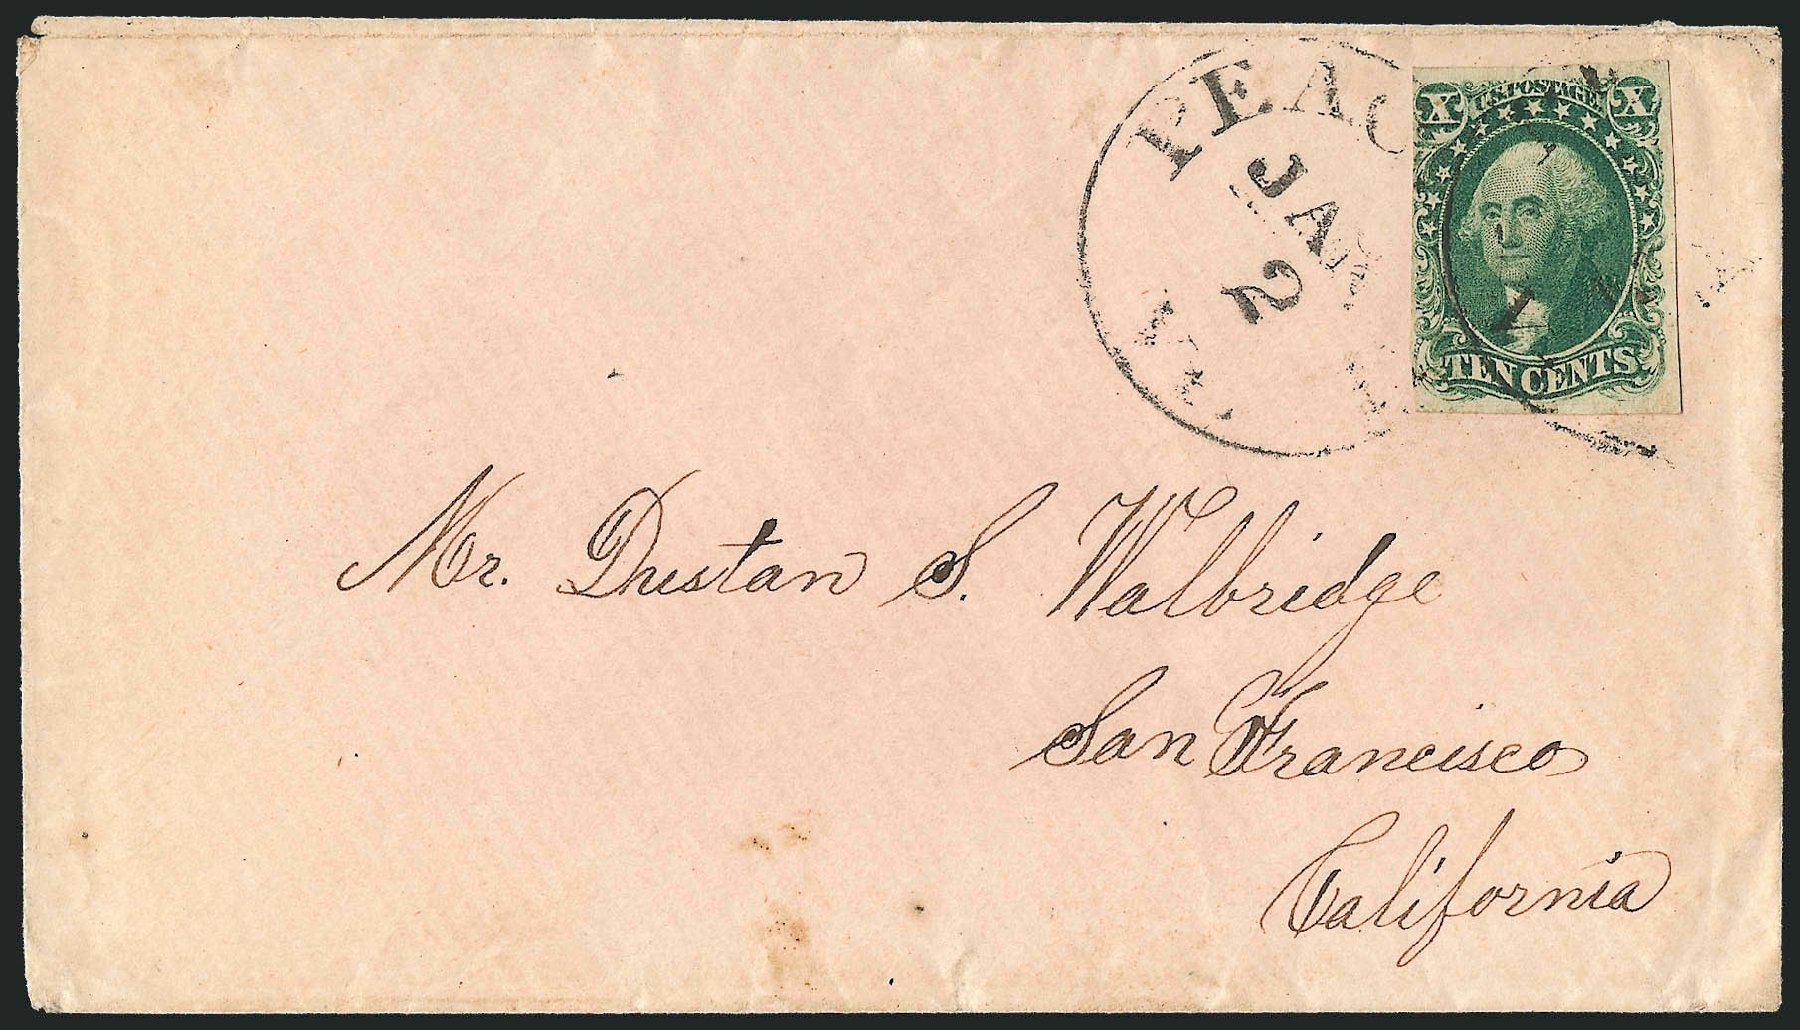 PEAC
JAN
2
X U.S. POSTAGE X
TEN CENTS
Mr. Dustan S. Walbridge
San Francisco
California